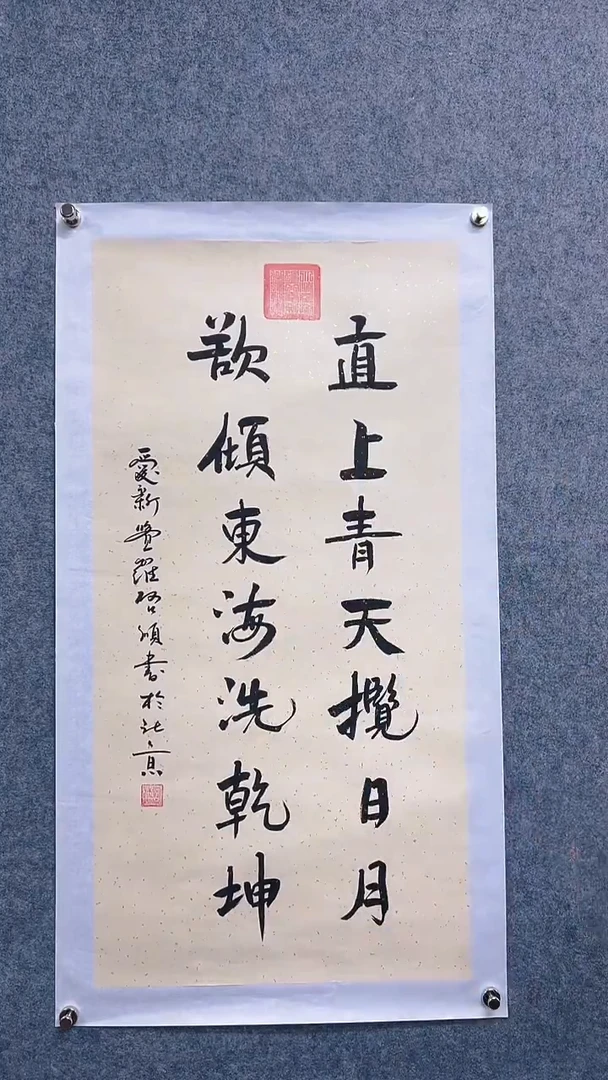 直上青天攬日月
欲傾東海洗乾坤
愛新覺羅啓頎書於北京